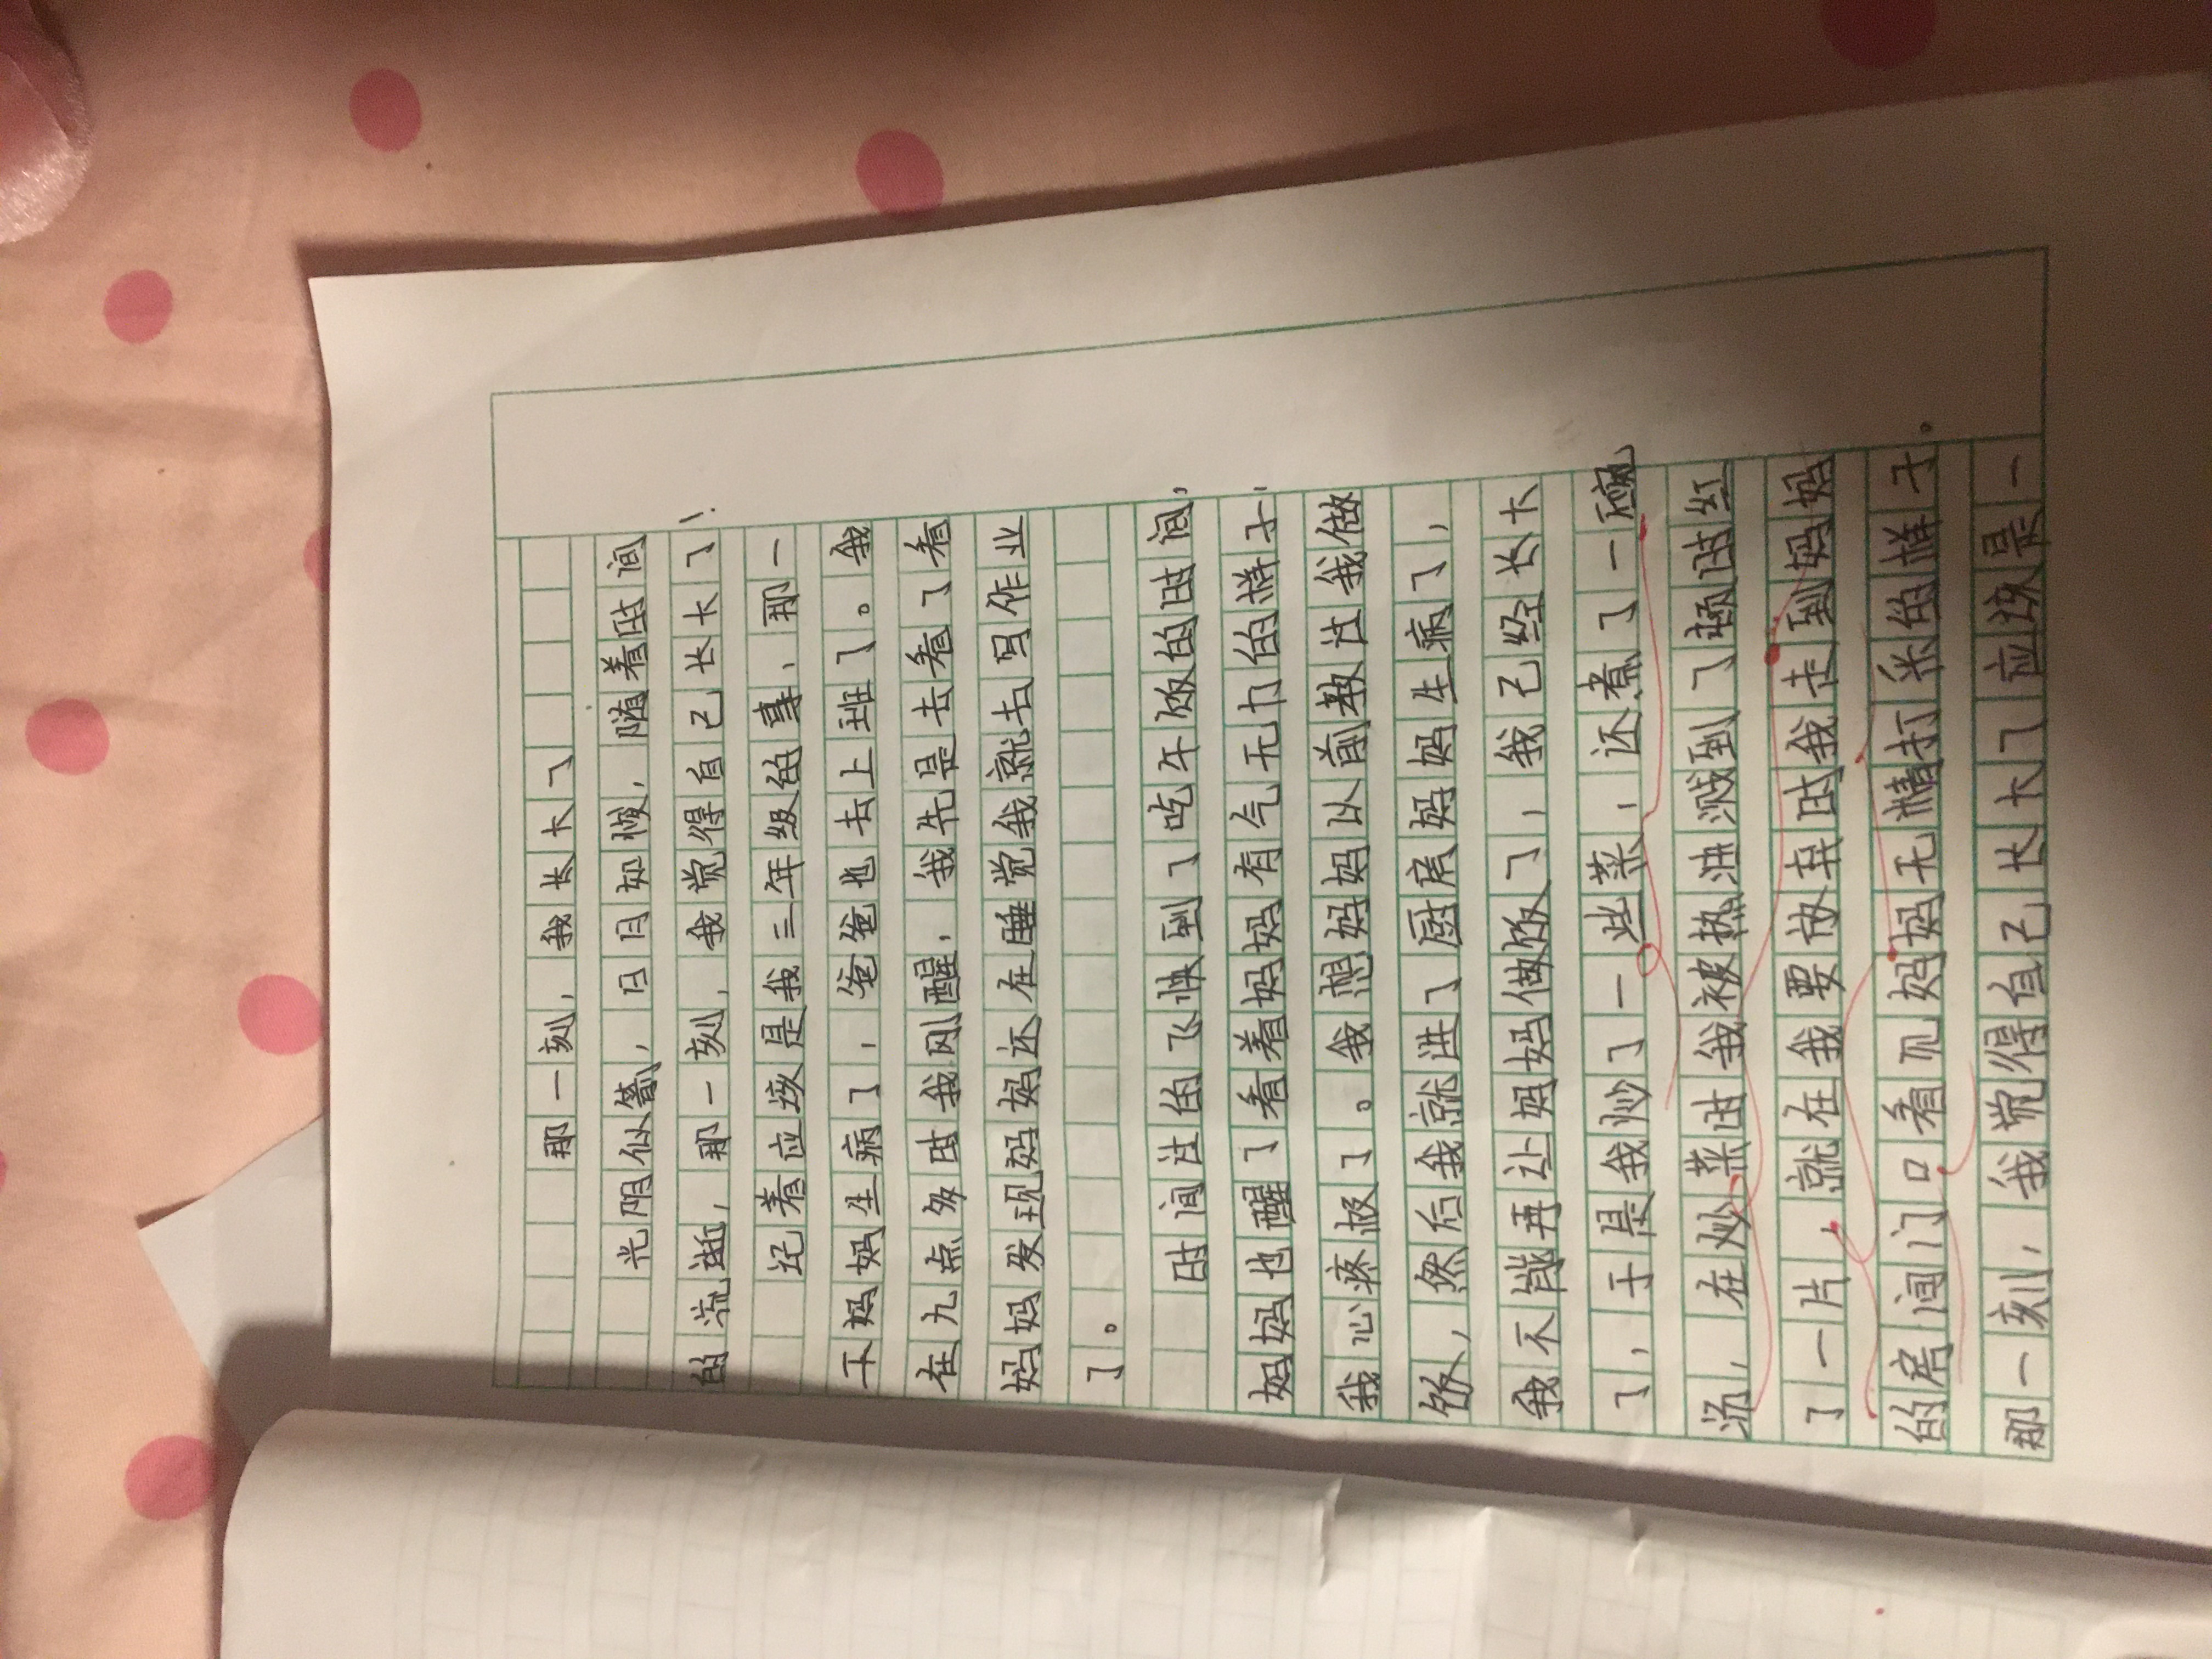 那一刻，我长大了
光阴似箭，日月如梭，随着时间
的流逝，那一刻，我觉得自己长大了！
记着应该是我三年级的事，那一
天妈妈生病了，爸爸也去上班了。我
在九点多时我刚醒，我先是去看了看
妈妈发现妈妈还在睡觉我就去写作业
了。
时间过的飞快到了吃午饭的时间，
妈妈也醒了看着妈妈有气无力的样子，
我心疼极了。我想妈妈以前教过我做
饭，然后我就进了厨房妈妈生病了，
我不能再让妈妈做饭了，我已经长大
了，于是我炒了一些菜，还煮了一碗
汤，在炒菜时我被热油溅到了顿时红
了一片，就在我要放弃时我走到妈妈
的房间门口看见妈妈无精打采的样子。
那一刻，我觉得自己长大了应该是一